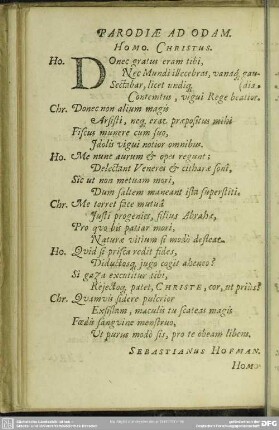 PARODIÆ AD ODAM.
HOMO. CHRISTUS.
Ho. Donec gratus eram tibi,
Nec Mundi illecebras, vanaq́; gau-
Sectabar, licet undiq; (dia.
Contentus, vigui Rege beatior.
Chr. Donec non alium magis
Arsisti, neq; erat præpositus mihi
Fiscus munere cum suo,
Idolis vigui notior omnibus.
Ho. Me nunc aurum & opes regunt;
Delectant Veneres & citharæ soni,
Sic ut non metuam mori,
Dum saltem maneant ista superstiti.
Chr. Me torret face mutuâ
Justi progenies, filius Abrahæ,
Pro quo bis patiar mori,
Naturæ vitium si modò defleat.
Ho. Quid si prisca redit fides,
Diductosq; jugo cogit aheneo?
Si gaza excutitur tibi,
Rejectoq; patet, CHRISTE, cor, ut priùs?
Chr. Quamvis sidere pulcrior
Existam, maculis tu scateas magis
Fœdi sanguine monstruo,
Ut purus modò sis, pro te obeam libens.
SEBASTIANUS HOFMAN.
HOMO